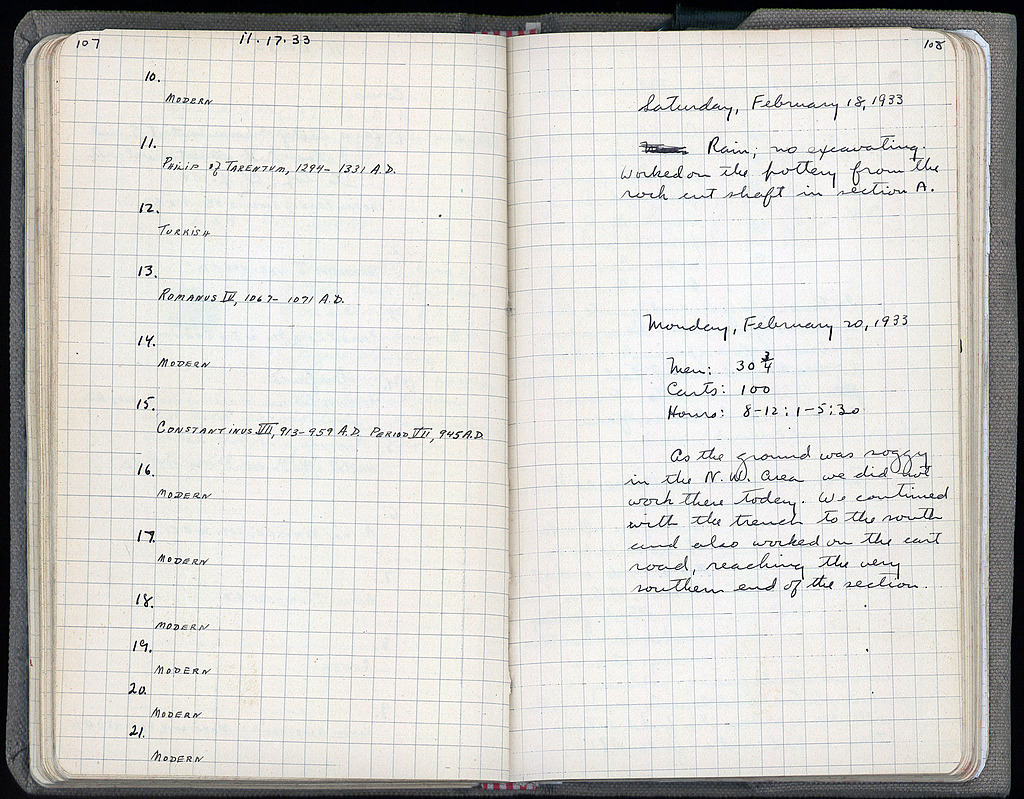 107
11.17.33
10.
MODERN
11.
PHILIP of TARENTUM, 1294-1331 A.D.
12.
TURKISH
13.
ROMANUS IV, 1067-1071 A.D.
14.
MODERN
15.
CONSTANTINUS VII, 913-959 A.D. PERIOD VII, 945 A.D.
16.
MODERN
17.
MODERN
18.
MODERN
19.
MODERN
20.
MODERN
21.
MODERN
108
Saturday, February 18, 1933
Rain; no excavating.
Worked on the pottery from the
rock cut shaft in section A.
Monday, February 20, 1933
Men: 30 3/4
Carts: 100
Hours: 8-12; 1-5:30
As the ground was soggy
in the N.W. area we did not
work there today. We continued
with the trench to the south
and also worked on the cart
road, reaching the very
southern end of the section.